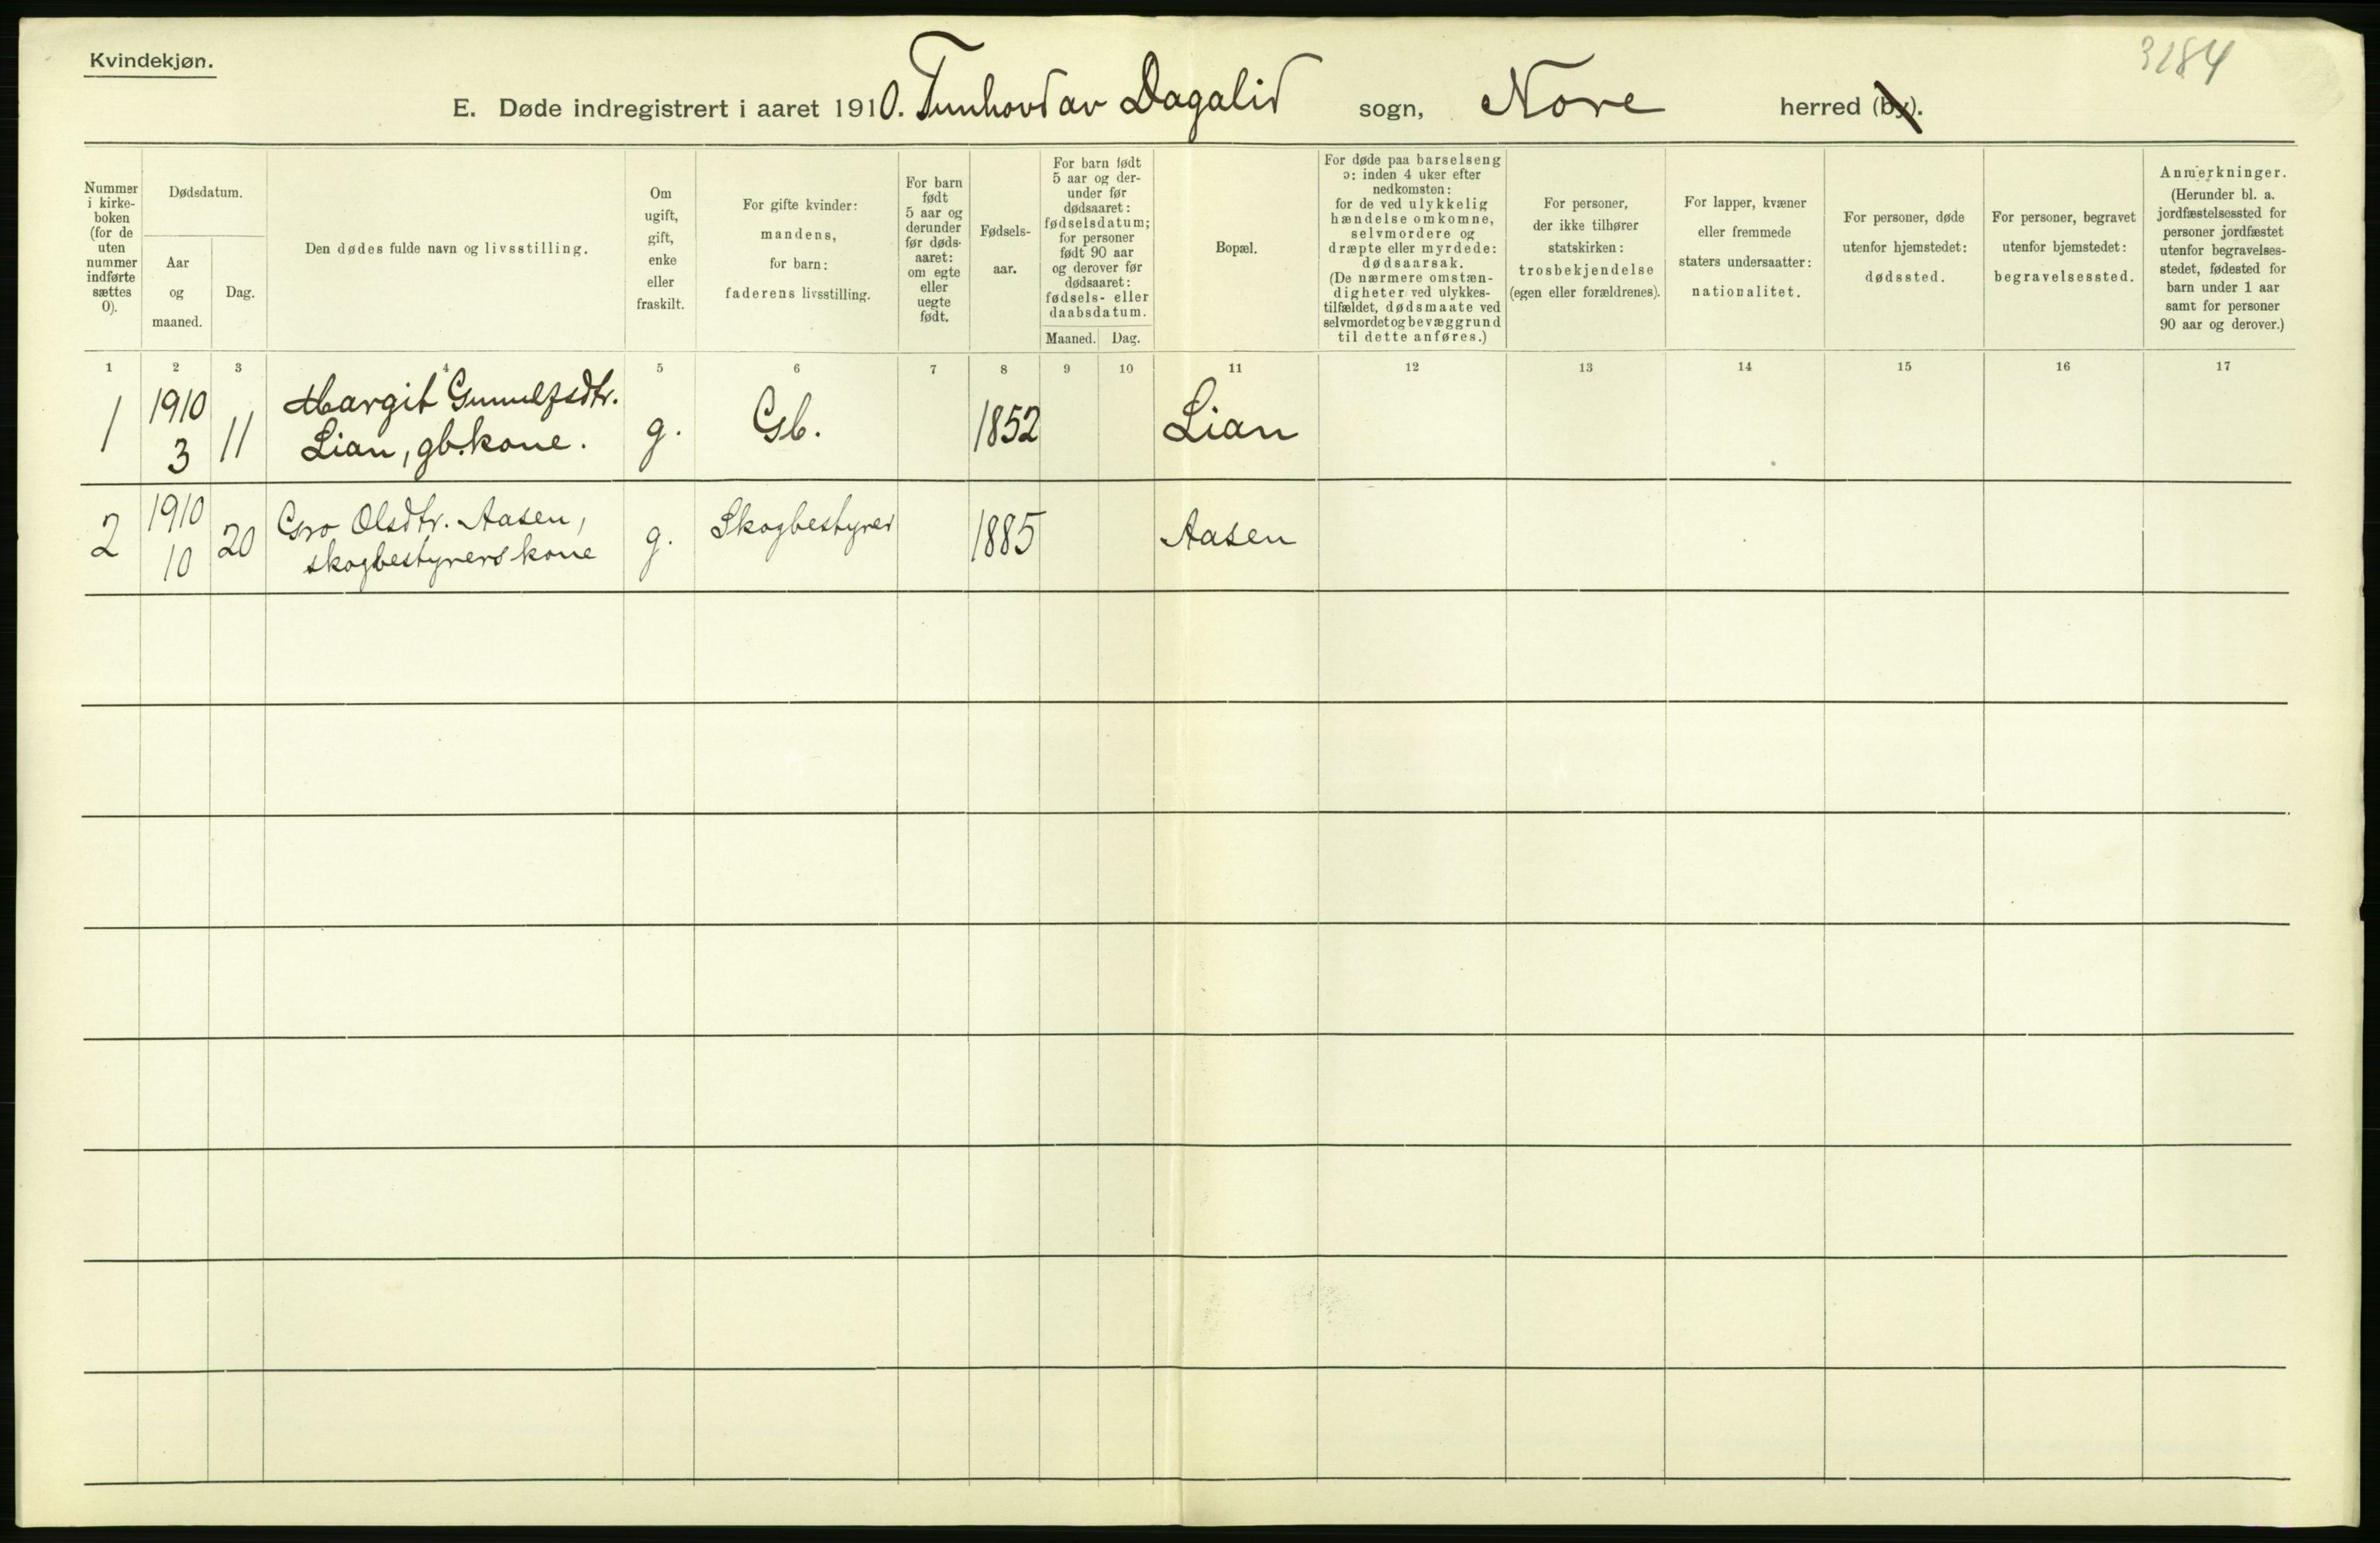 Kvindekjøn.
3184
E. Døde indregistrert i aaret 1910. Tunhovd av Dagalid sogn, Nore herred (by).
Nummer
i kirke-
boken
(for de
uten
nummer
indførte
sættes
0).
Dødsdatum.
Aar
og
maaned.
Dag.
Den dødes fulde navn og livsstilling.
Om
ugift,
gift,
enke
eller
fraskilt.
For gifte kvinder:
mandens,
for barn:
faderens livsstilling.
For barn
født
5 aar og
derunder
før døds-
aaret:
om egte
eller
uegte
født.
Fødsels-
aar.
For barn født
5 aar og der-
under før
dødsaaret:
fødselsdatum;
for personer
født 90 aar
og derover før
dødsaaret:
fødsels- eller
daabsdatum.
Maaned. Dag.
Bopæl.
For døde paa barselseng
ɔ: inden 4 uker efter
nedkomsten:
for de ved ulykkelig
hændelse omkomne,
selvmordere og
dræpte eller myrdede:
dødsaarsak.
(De nærmere omstæn-
digheter ved ulykkes-
tilfældet, dødsmaate ved
selvmordet og bevæggrund
til dette anføres.)
For personer,
der ikke tilhører
statskirken:
trosbekjendelse
(egen eller forældrenes).
For lapper, kvæner
eller fremmede
staters undersaatter:
nationalitet.
For personer, døde
utenfor hjemstedet:
dødssted.
For personer, begravet
utenfor hjemstedet:
begravelsessted.
Anmerkninger.
(Herunder bl. a.
jordfæstelsessted for
personer jordfæstet
utenfor begravelses-
stedet, fødested for
barn under 1 aar
samt for personer
90 aar og derover.)
1 2 3 4 5 6 7 8 9 10 11 12 13 14 15 16 17
1 1910 3 11 Margit Gunulfsdtr.
Lian, gb.kone. g. Gb. 1852 Lian
2 1910 10 20 Gro Olsdtr. Aasen,
skogbestyrers kone g. Skogbestyrer 1885 Aasen